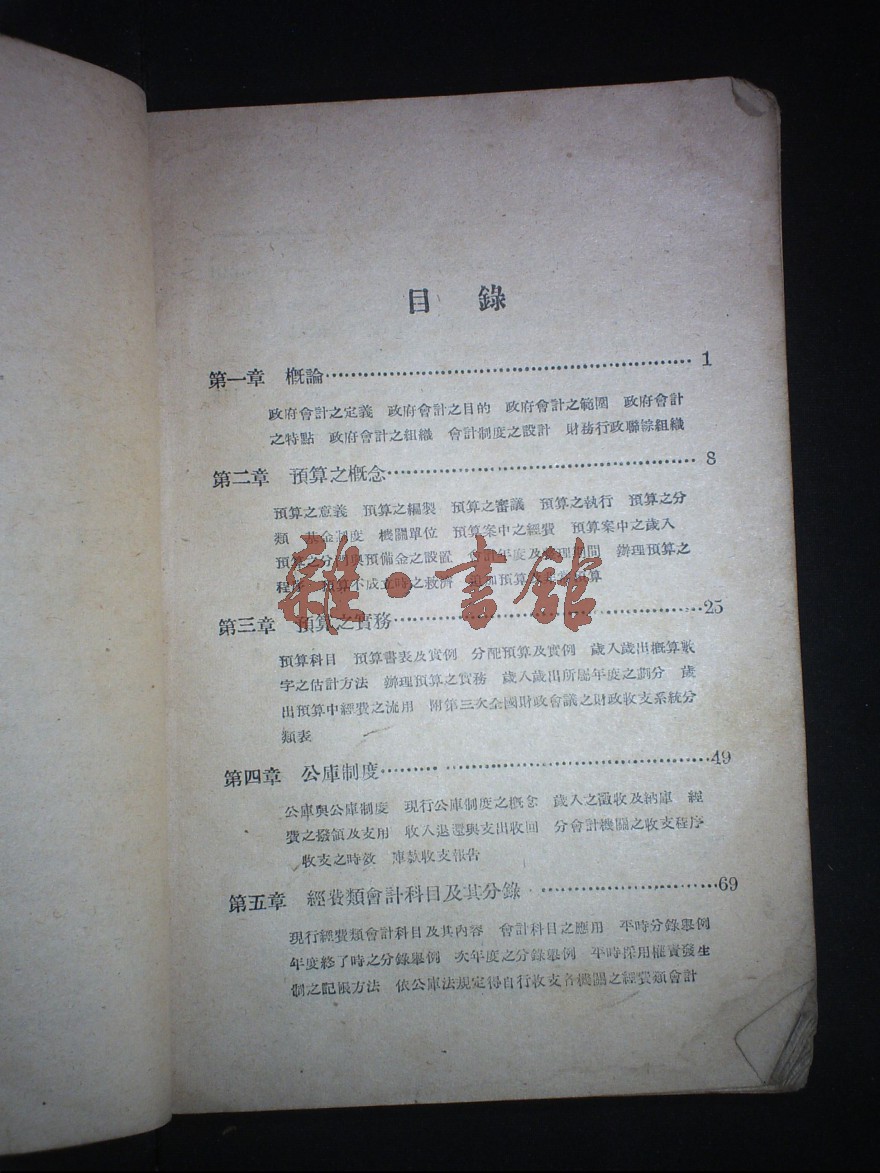 目錄
第一章 概論 1
政府會計之定義 政府會計之目的 政府會計之範圍 政府會計
之特點 政府會計之組織 會計制度之設計 財務行政聯綜組織
第二章 預算之概念 8
預算之意義 預算之編製 預算之審議 預算之執行 預算之分
類 基金制度 機關單位 預算案中之經費 預算案中之歲入
預算之分門與預備金之設置 會計年度及整理期間 辦理預算之
程序 預算不成立時之救濟 追加預算 預算
雜·書館
第三章 預算之實務 25
預算科目 預算書表及實例 分配預算及實例 歲入歲出概算數
字之估計方法 辦理預算之實務 歲入歲出所屬年度之劃分 歲
出預算中經費之流用 附第三次全國財政會議之財政收支系統分
類表
第四章 公庫制度 49
公庫與公庫制度 現行公庫制度之概念 歲入之徵收及納庫 經
費之撥領及支用 收入退還與支出收回 分會計機關之收支程序
收支之時效 庫款收支報告
第五章 經費類會計科目及其分錄 69
現行經費類會計科目及其內容 會計科目之應用 平時分錄舉例
年度終了時之分錄舉例 次年度之分錄舉例 平時採用權責發生
制之記帳方法 依公庫法規定得自行收支各機關之經費類會計